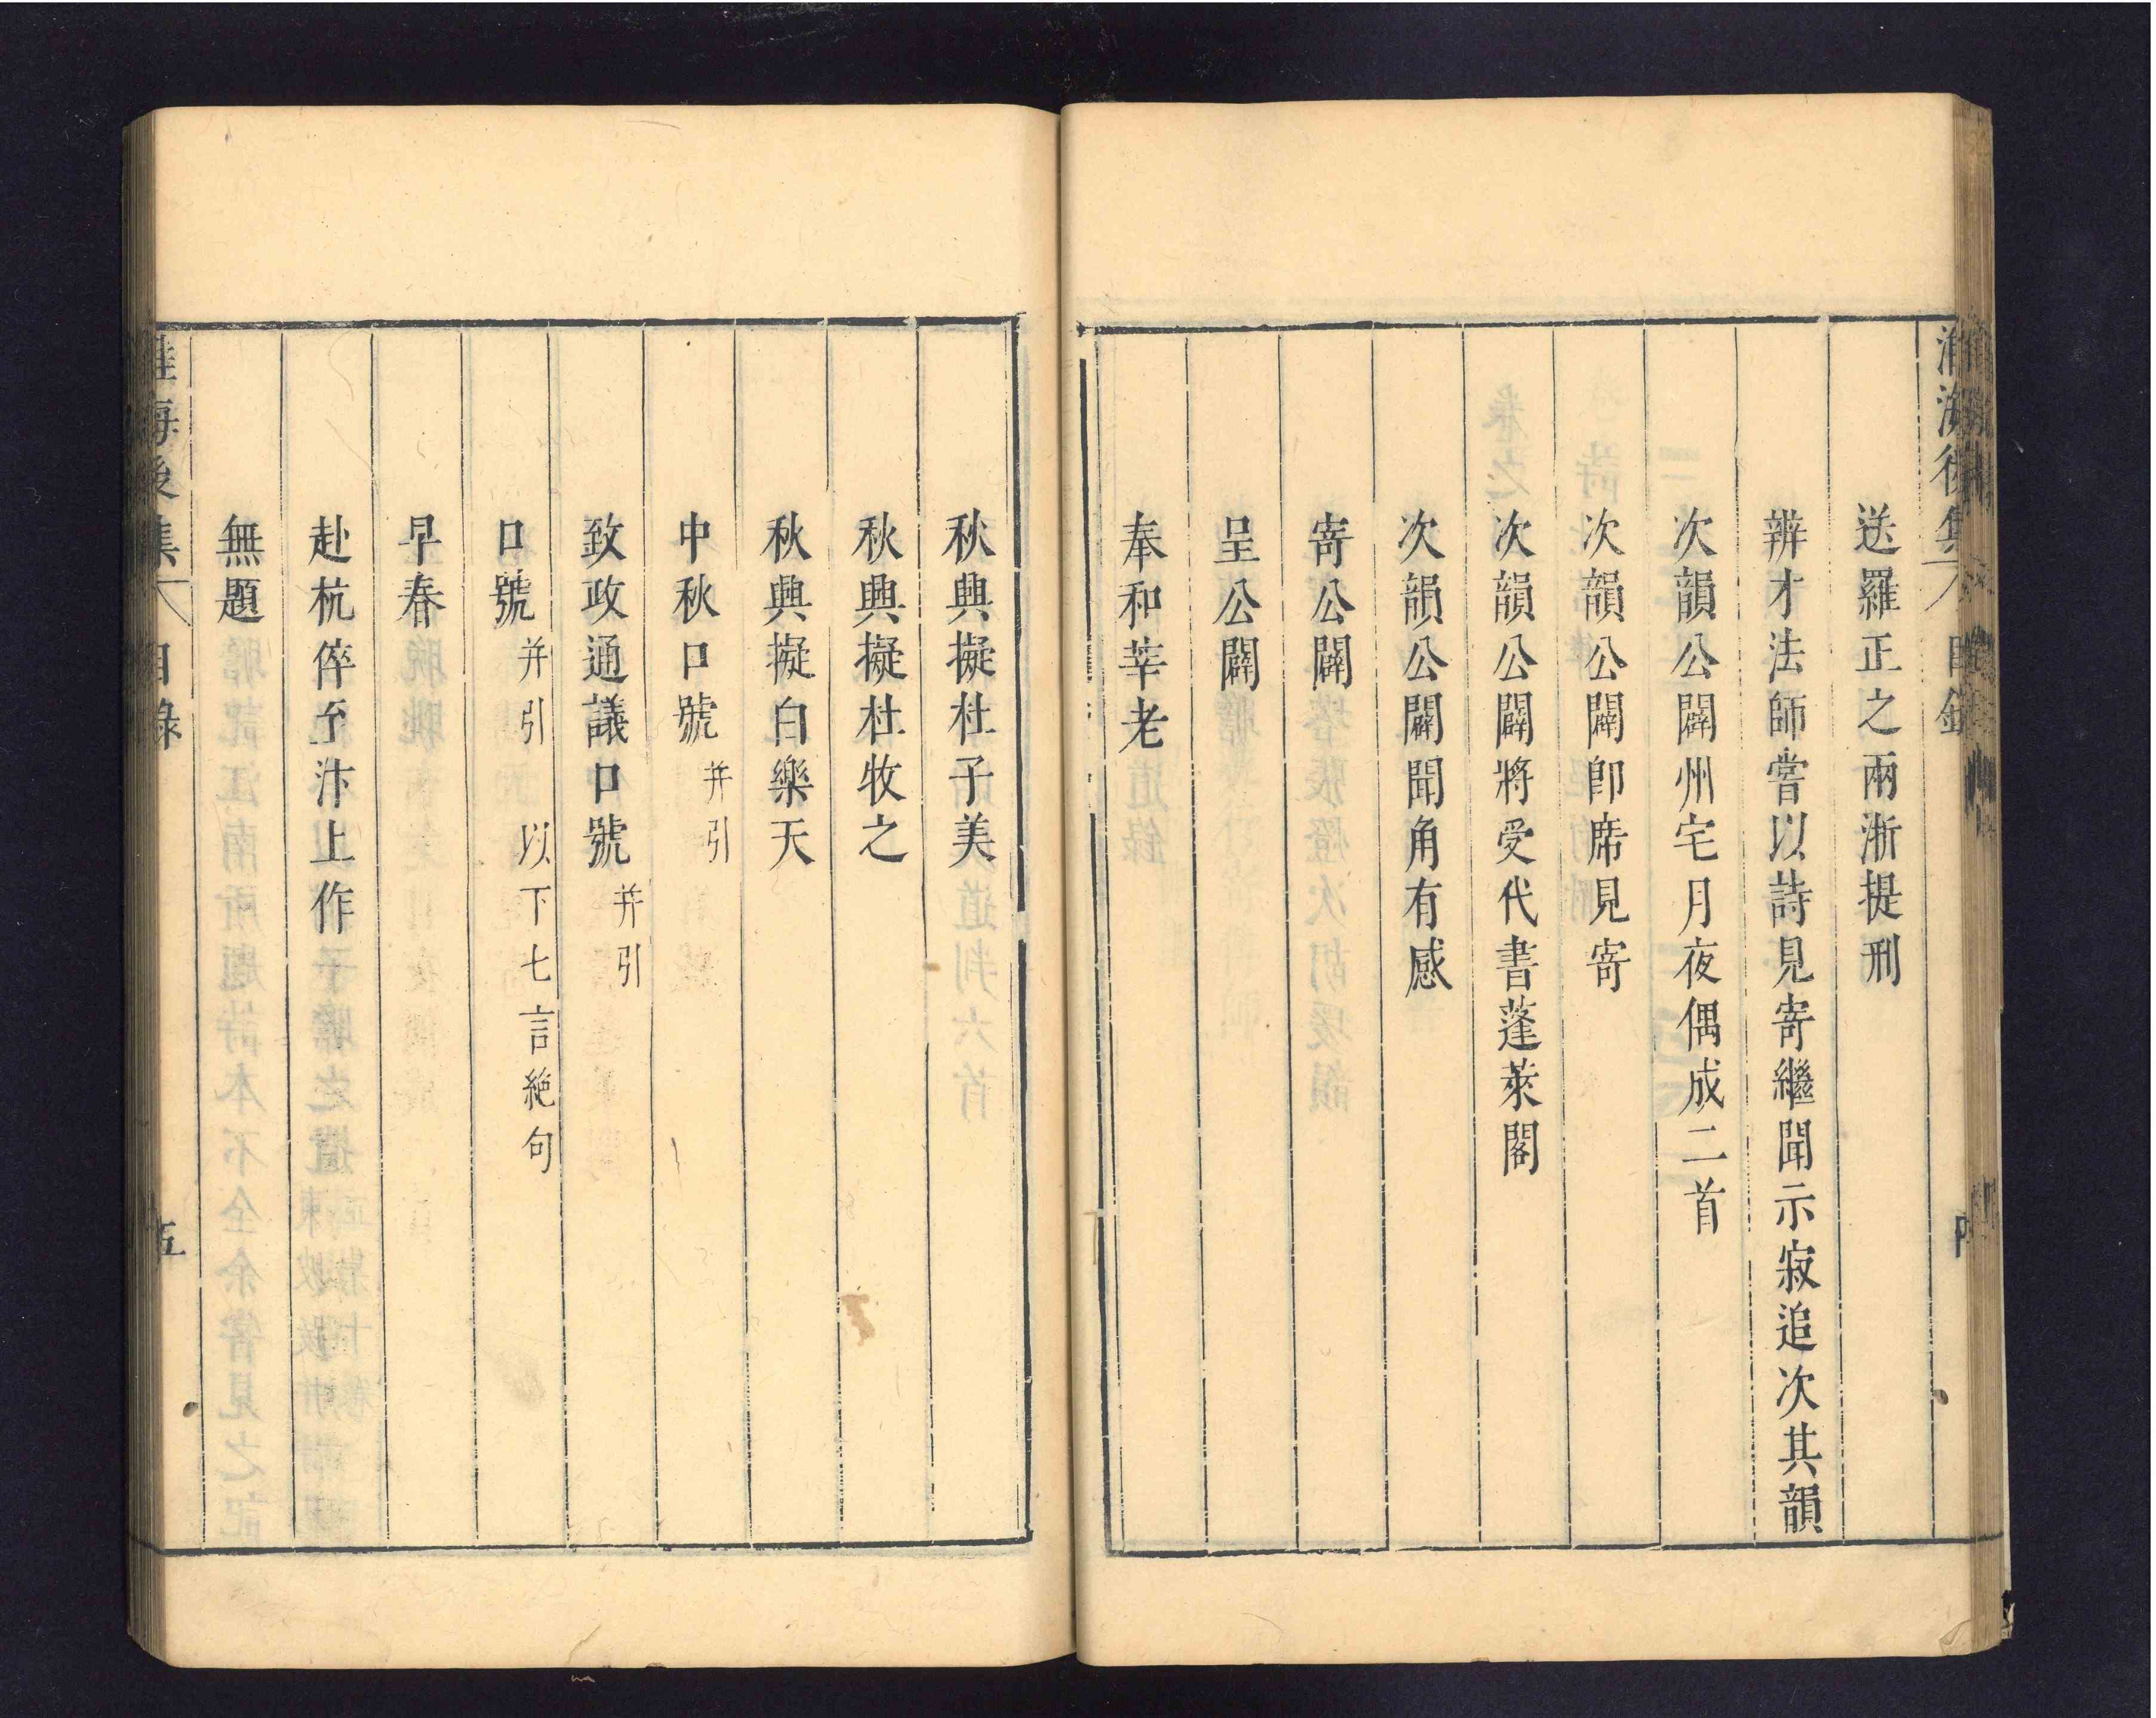 淮海後集 目録
送羅正之兩浙提刑
辨才法師嘗以詩見寄繼聞示寂追次其韻
次韻公闢州宅月夜偶成二首
次韻公闢卽席見寄
次韻公闢將受代書蓬萊閣
次韻公闢聞角有感
寄公闢
呈公闢
奉和莘老
秋興擬杜子美
秋興擬杜牧之
秋興擬白樂天
中秋口號 并引
致政通議口號 并引
口號 并引 以下七言絶句
早春
赴杭倅至汴上作
無題
淮海後集 目録 五